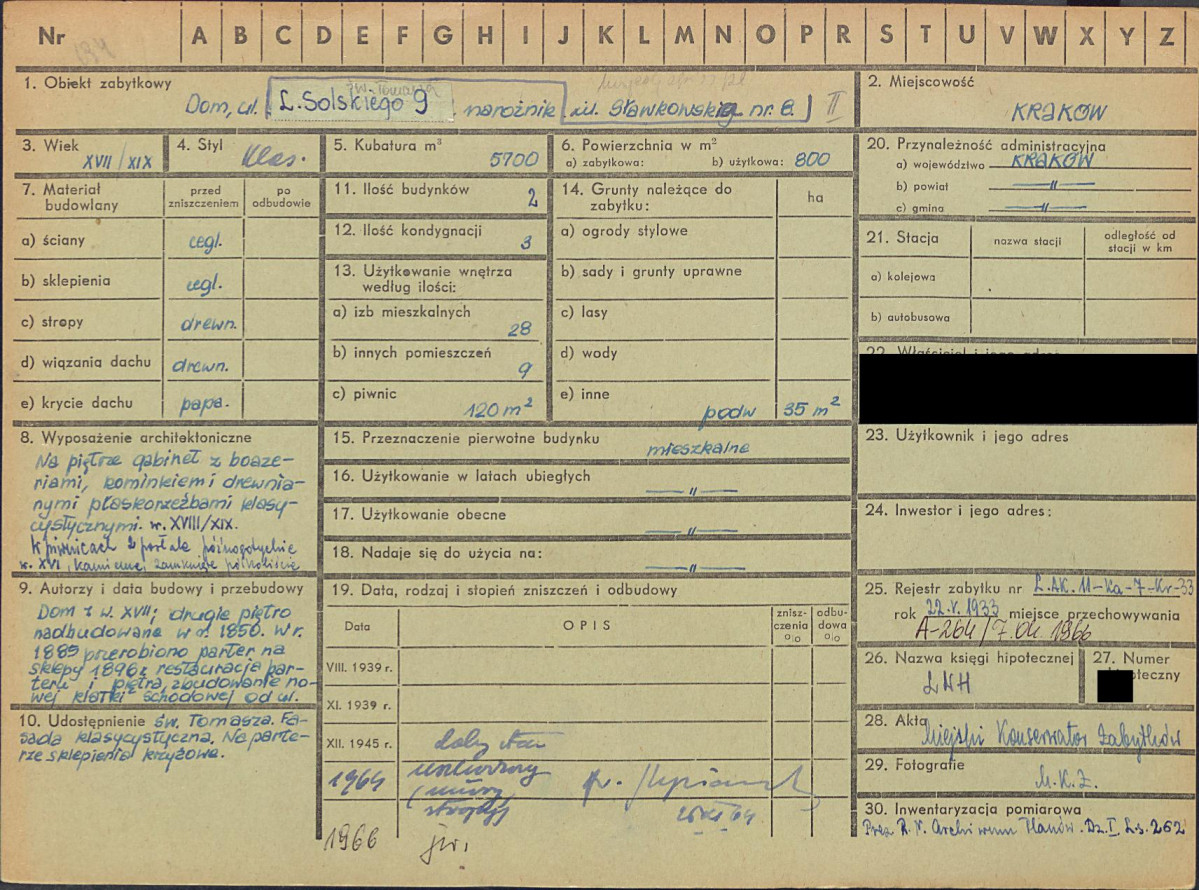 Nr A B C D E F G H I J K L M N O P R S T U V W X Y Z
194
1. Obiekt zabytkowy
Św. Tomasza
Dom, ul. L. Solskiego 9 narożnik ul. Sławkowskiej nr. 8. II
2. Miejscowość
KRAKÓW
3. Wiek
XVII/XIX
4. Styl
klas.
5. Kubatura m³
5700
6. Powierzchnia w m²
a) zabytkowa: b) użytkowa: 800
20. Przynależność administracyjna
a) województwo KRAKÓW
b) powiat —〃—
c) gmina —〃—
7. Materiał budowlany
przed zniszczeniem
po odbudowie
a) ściany cegl.
b) sklepienia cegl.
c) stropy drewn.
d) wiązania dachu drewn.
e) krycie dachu papa.
11. Ilość budynków 2
12. Ilość kondygnacji 3
13. Użytkowanie wnętrza
według ilości:
a) izb mieszkalnych
28
b) innych pomieszczeń
9
c) piwnic
120 m²
14. Grunty należące do
zabytku:
ha
a) ogrody stylowe
b) sady i grunty uprawne
c) lasy
d) wody
e) inne
podw 35 m²
21. Stacja
nazwa stacji
odległość od
stacji w km
a) kolejowa
b) autobusowa
8. Wyposażenie architektoniczne
Na piętrze gabinet z boaze-
riami, kominkiem i drewnia-
nymi płaskorzeźbami klasy-
cystycznymi. w. XVIII/XIX.
W piwnicach 2 portale późnogotyckie
w. XVI, kamienne, zamknięte półkoliście
9. Autorzy i data budowy i przebudowy
Dom z w. XVII; drugie piętro
nadbudowane w r. 1850. W r.
1885 przerobiono parter na
sklepy 1896 r. restauracja par-
teru i piętra, zbudowanie no-
wej klatki schodowej od ul.
10. Udostępnienie św. Tomasza. Fa-
sada klasycystyczna. Na parte-
rze sklepienia krzyżowe.
15. Przeznaczenie pierwotne budynku
mieszkalne
16. Użytkowanie w latach ubiegłych
—〃—
17. Użytkowanie obecne
—〃—
18. Nadaje się do użycia na:
—〃—
19. Data, rodzaj i stopień zniszczeń i odbudowy
Data
OPIS
znisz-
czenia
%
odbu-
dowa
%
VIII. 1939 r.
XI. 1939 r.
XII. 1945 r. dobry stan
1964
stropy)
1966 jw.
23. Użytkownik i jego adres
24. Inwestor i jego adres:
25. Rejestr zabytku nr L.AK. 11-Ka-7-Kr-33
rok 22.V.1933 miejsce przechowywania
A-264/7.04.1966
26. Nazwa księgi hipotecznej
LWH
27. Numer
28. Akta
Miejski Konserwator Zabytków
29. Fotografie
M.K.Z.
30. Inwentaryzacja pomiarowa
Prez. R. N. Archiwum Planów. Dz. I, L.s. 262